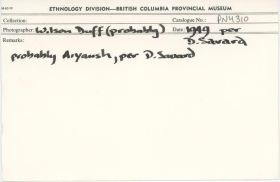 ETHNOLOGY DIVISION—BRITISH COLUMBIA PROVINCIAL MUSEUM
Collection: Catalogue No.: PN4310
Photographer: Wilson Duff (probably) Date 1949 per
D. Savard
Remarks:
probably Aryaush, per D. Savard